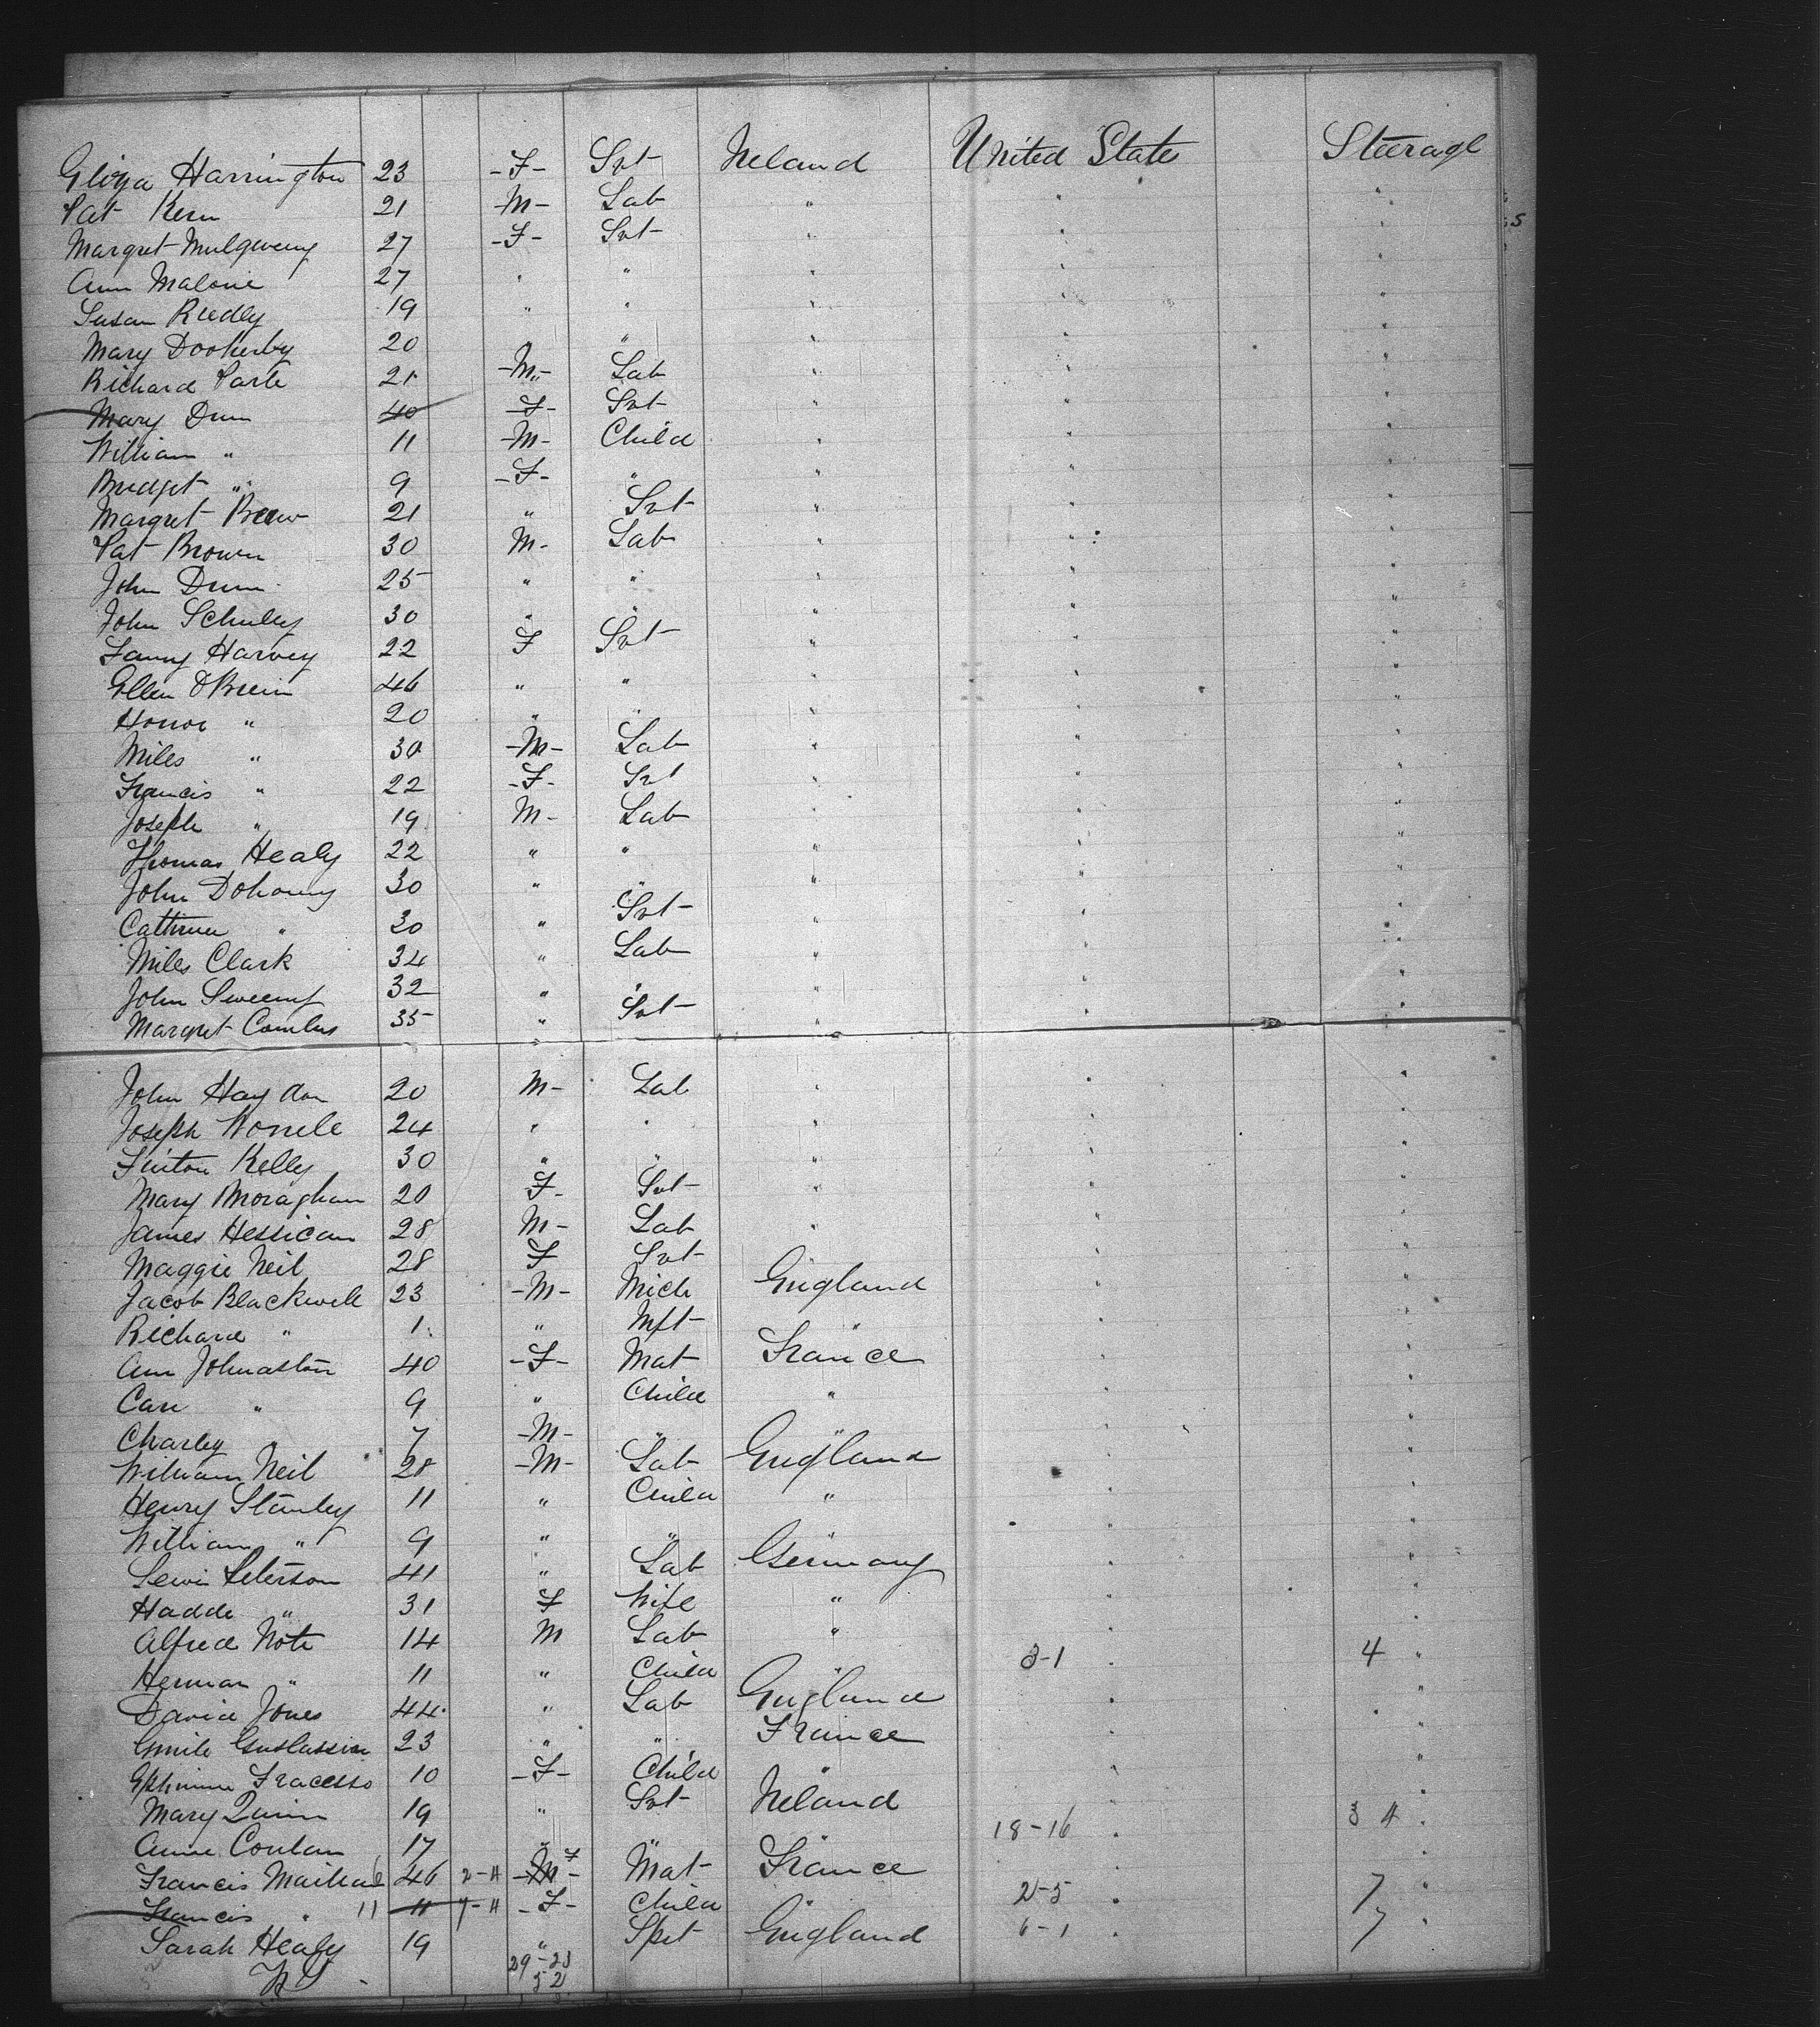 Eliza Harrington 23 -F- Svt Ireland United State Steerage
Pat Kern 21 -M- Lab " " "
Margret Mulqweny 27 -F- Svt " " "
Ann Malone 27 " " " " "
Susan Reedly 19 " " " " "
Mary Dooherby 20 " " " " "
Richard 21 -M- Lab " " "
Mary Dunn 40 -F- Svt " " "
William " 11 -M- Child " " "
Bridget " 9 -F- " " " "
Margret 21 " Svt " " "
Pat Brown 30 M- Lab " " "
John Dunn 25 " " " " "
John Schuley 30 " " " " "
Fanny Harvey 22 F Svt " " "
Ellen O'Brein 46 " " " " "
Honor " 20 " " " " "
Miles " 30 -M- Lab " " "
Francis " 22 -F- Svt " " "
Joseph " 19 M- Lab " " "
Thomas Healy 22 " " " " "
John Dohouny 30 " " " " "
" 30 " Svt " " "
Miles Clark 34 " Lab " " "
John Sweeny 32 " " " " "
Margret 35 " Svt " " "
John Haydon 20 M- Lab " " "
Joseph 24 " " " " "
Finton Kelly 30 " " " " "
Mary Monaghan 20 F- Svt " " "
James Hessican 28 M- Lab " " "
Maggie Neil 28 F Svt " " "
Jacob Blackwell 23 -M- Mich England " "
Richard " 1 " Inft " " "
Ann Johnaston 40 -F- Mat France " "
" 9 " Child " " "
Charley " 7 -M- " " " "
William Neil 28 -M- Lab England " "
Henry Stanley 11 " Child " " "
William " 9 " " " " "
Lewis Peterson 41 " Lab Germany " "
Hadde " 31 F Wife " " "
Alfred Note 14 M Lab " 3-1 " 4 "
Herman " 11 " Child " " "
David Jones 44 " Lab England " "
Emile 23 " " France " "
10 -F- Child " " "
Mary Quinn 19 " Svt Ireland " "
Anne Conlan 17 " " " 18-16 " 3 4 "
Francis 46 2-H -M- F Mat France " "
Francis " 11 11 7-H -F- Child " 2-5 " 7 "
Sarah Healy 19 " Spst England 6-1 " 7 "
29-23
52